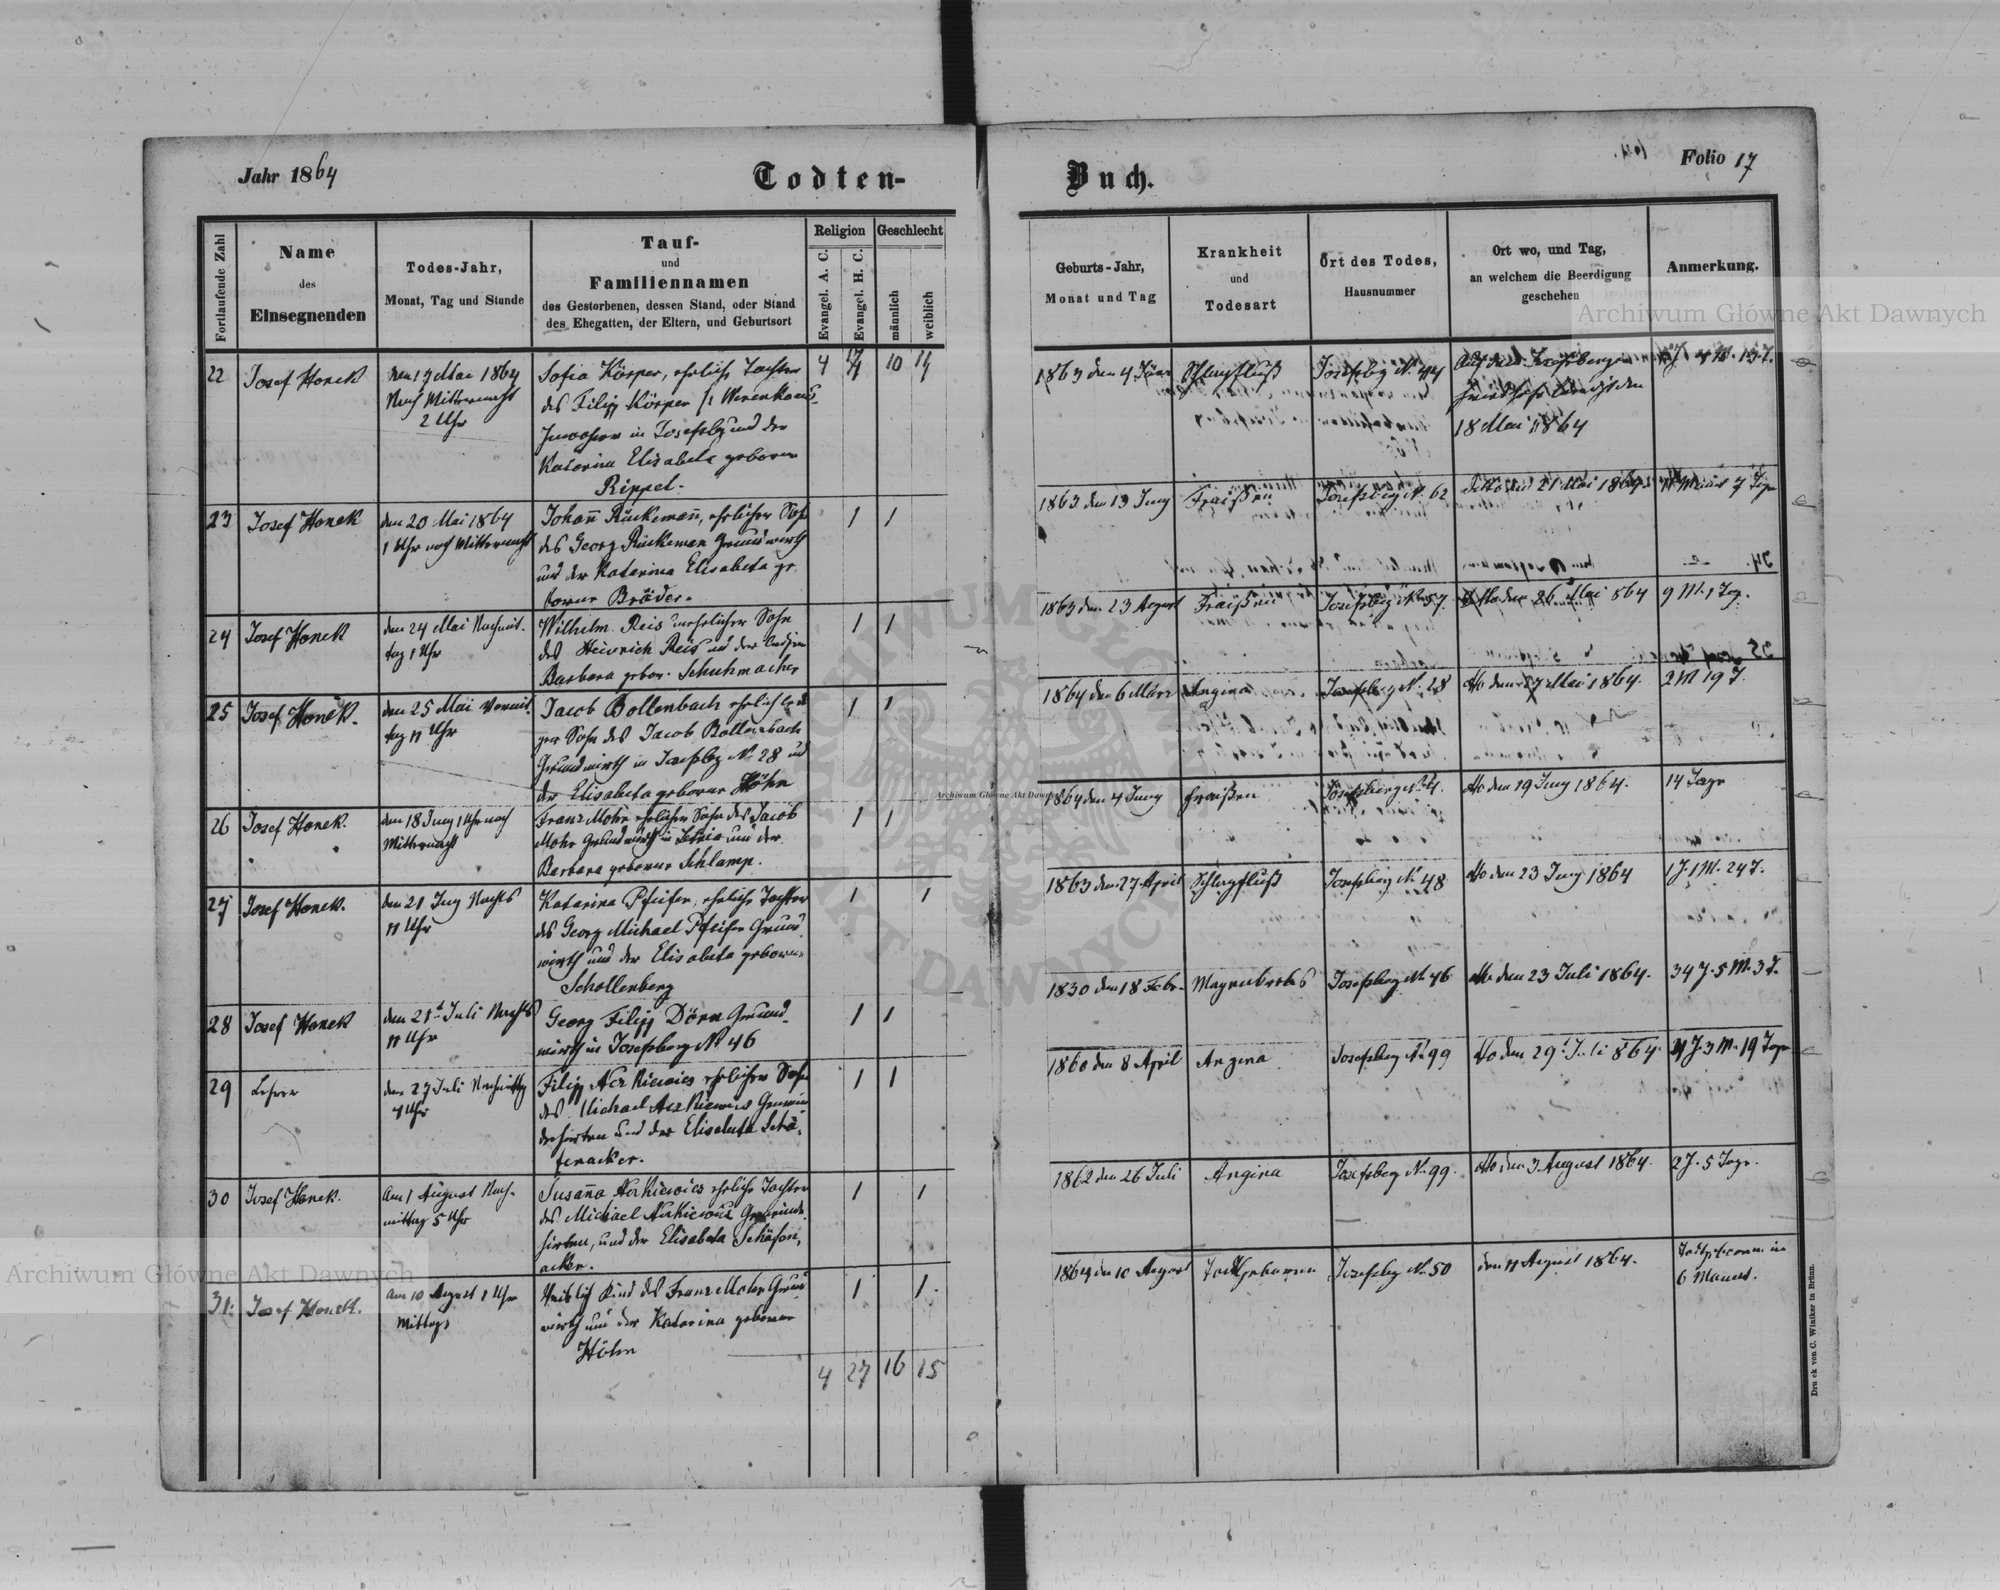 Jahr 1864
Todten-
Buch.
Folio 17
Fortlaufende Zahl
Name
des
Einsegnenden
Todes-Jahr,
Monat, Tag und Stunde
Tauf-
und
Familiennamen
des Gestorbenen, dessen Stand, oder Stand
des Ehegatten, der Eltern, und Geburtsort
Religion
Evangel. A. C.
Evangel. H. C.
Geschlecht
männlich
weiblich
Geburts-Jahr,
Monat und Tag
Krankheit
und
Todesart
Ort des Todes,
Hausnummer
Ort wo, und Tag,
an welchem die Beerdigung
geschehen
Anmerkung.
22
Josef Honek
den 17 Mai 1864
Nach Mitternacht
2 Uhr
Sofia Körper, ehelich Tochter
des Filipp Körper
in Josefsbg und der
Katarina Elisabeta geborne
Rippel.
4
10
11
1863 den 4 Jän
Schlagfluß
Josefsbg N. 44
18 Mai 1864
4 M. 13 T.
23
Josef Honek
den 20 Mai 1864
1 Uhr nach Mitternacht
Johañ Rückemañ, ehelicher Sohn
des Georg Rückeman Grundwirth
und der Katarina Elisabeta ge
borne Bräder.
1
1
1863 den 13 Juny
Fraißen
Josefsberg N. 62
den 21 Mai 1864
11 Monat 7 Tage
24
Josef Honek
den 24 Mai Nachmit-
tag 1 Uhr
Wilhelm Reis unehelicher Sohn
des Heinrich Reis und der
Barbara gebor. Schuhmacher
1
1
1863 den 23 August
Fraißen
Josefsbg N. 57.
den 26 Mai 864
9 M. 1 Tag.
25
Josef Honek.
den 25 Mai Vormit.
tag 11 Uhr
Jacob Bollenbach ehelich
Sohn des Jacob Bollenbach
Grundwirth in Josefsbg N. 28 und
der Elisabeta geborne Höhn
1
1
1864 den 6 März
Angina
Josefsberg N. 28
dtto den 27 Mai 1864.
2 M 19 T.
26
Josef Honek.
den 18 Juny 1 Uhr nach
Mitternacht
Franz Mohr ehelicher Sohn des Jacob
Mohr Grundwirth in und der
Barbara geborne Schlamp.
1
1
1864 den 4 Juny
Fraißen
Josefsberg N. 4.
dtto den 19 Juny 1864.
14 Tage
27
Josef Honek.
den 21 Juny Nachts
11 Uhr
Katarina Pfeifer, eheliche Tochter
des Georg Michael Pfeifer Grund
wirth und der Elisabeta geborne
Schollenberg
1
1
1863 den 27 April
Schlagfluß
Josefsberg N. 48
dtto den 23 Juny 1864
1 J. 1 M. 24 T.
28
Josef Honek
den 21t Juli Nachts
11 Uhr
Georg Filipp Dörn Grund-
wirth in Josefsberg N. 46
1
1
1830 den 18 Feber
Magenkrebs
Josefsberg N. 46
dtto den 23 Juli 1864.
34 J. 5 M. 3 T.
29
Lehrer
den 27 Juli Nachmittag
Uhr
Filipp Nerkiewics ehelicher Sohn
des Michael Nerkiewics Gemein
dehirten und der Elisabeta Schä-
fenacker.
1
1
1860 den 8 April
Angina
Josefsberg N. 99
dtto den 29t Juli 864.
4 J 3 M. 19 Tage
30
Josef Honek.
Am 1 August Nach-
mittag 5 Uhr
Susaña Nerkiewics eheliche Tochter
des Michael Nerkiewics Gemeinde-
hirten, und der Elisabeta Schäfen,
acker.
1
1
1862 den 26 Juli
Angina
Josefsberg N. 99.
dtto den 3 August 1864.
2 J. 5 Tage.
31.
Josef Honek.
Am 10 August 1 Uhr
Mittags
Weiblich Kind des Franz Mohr Grund
wirth und der Katarina geborne
Höhn
1
1.
1864 den 10 August
Todtgeboren
Josefsbg N. 50
den 11 August 1864.
Todtgeboren im
6 Monat.
4
27
16
15
Druck von C. Winiker in Brünn.
Archiwum Główne Akt Dawnych
Archiwum Główne Akt Dawnych
Archiwum Główne Akt Dawnych
ARCHIWUM GŁÓWNE AKT DAWNYCH